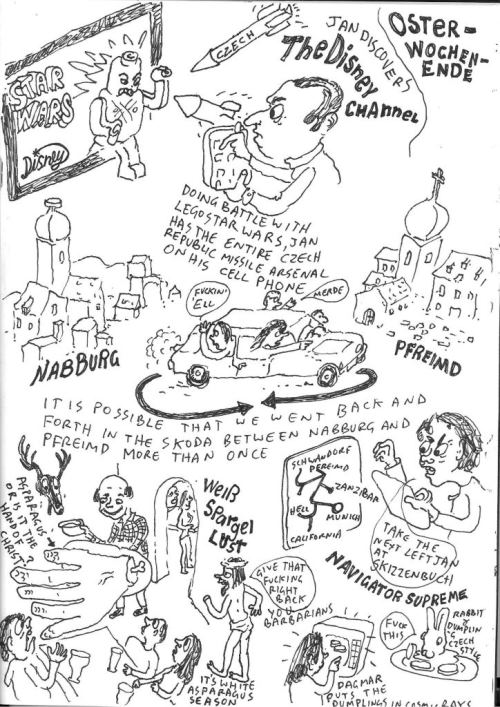 OSTER-
WOCHEN-
ENDE
JAN DISCOVERS
The Disney
CHANNEL
CZECH
STAR
WARS
Disney
DOING BATTLE WITH
LEGO STAR WARS, JAN
HAS THE ENTIRE CZECH
REPUBLIC MISSILE ARSENAL
ON HIS CELL PHONE
FUCKIN'
'ELL
MERDE
NABBURG
PFREIMD
IT IS POSSIBLE THAT WE WENT BACK AND
FORTH IN THE SKODA BETWEEN NABBURG AND
PFREIMD MORE THAN ONCE
ASPARAGUS
OR IS IT THE
HAND OF
CHRIST?
WEIß
SPARGEL
LUST
SCHWANDORF
PFREIMD
ZANZIBAR
HELL
MUNICH
CALIFORNIA
TAKE THE
NEXT LEFT JAN
AT
SKIZZENBUCH
NAVIGATOR SUPREME
GIVE THAT
FUCKING
RIGHT
BACK
YOU
BARBARIANS
IT'S WHITE
ASPARAGUS
SEASON
FUCK
THIS
RABBIT
&
DUMPLIN
G
CZECH
STYLE
DAGMAR
PUTS THE
DUMPLINGS IN COSMIC RAYS